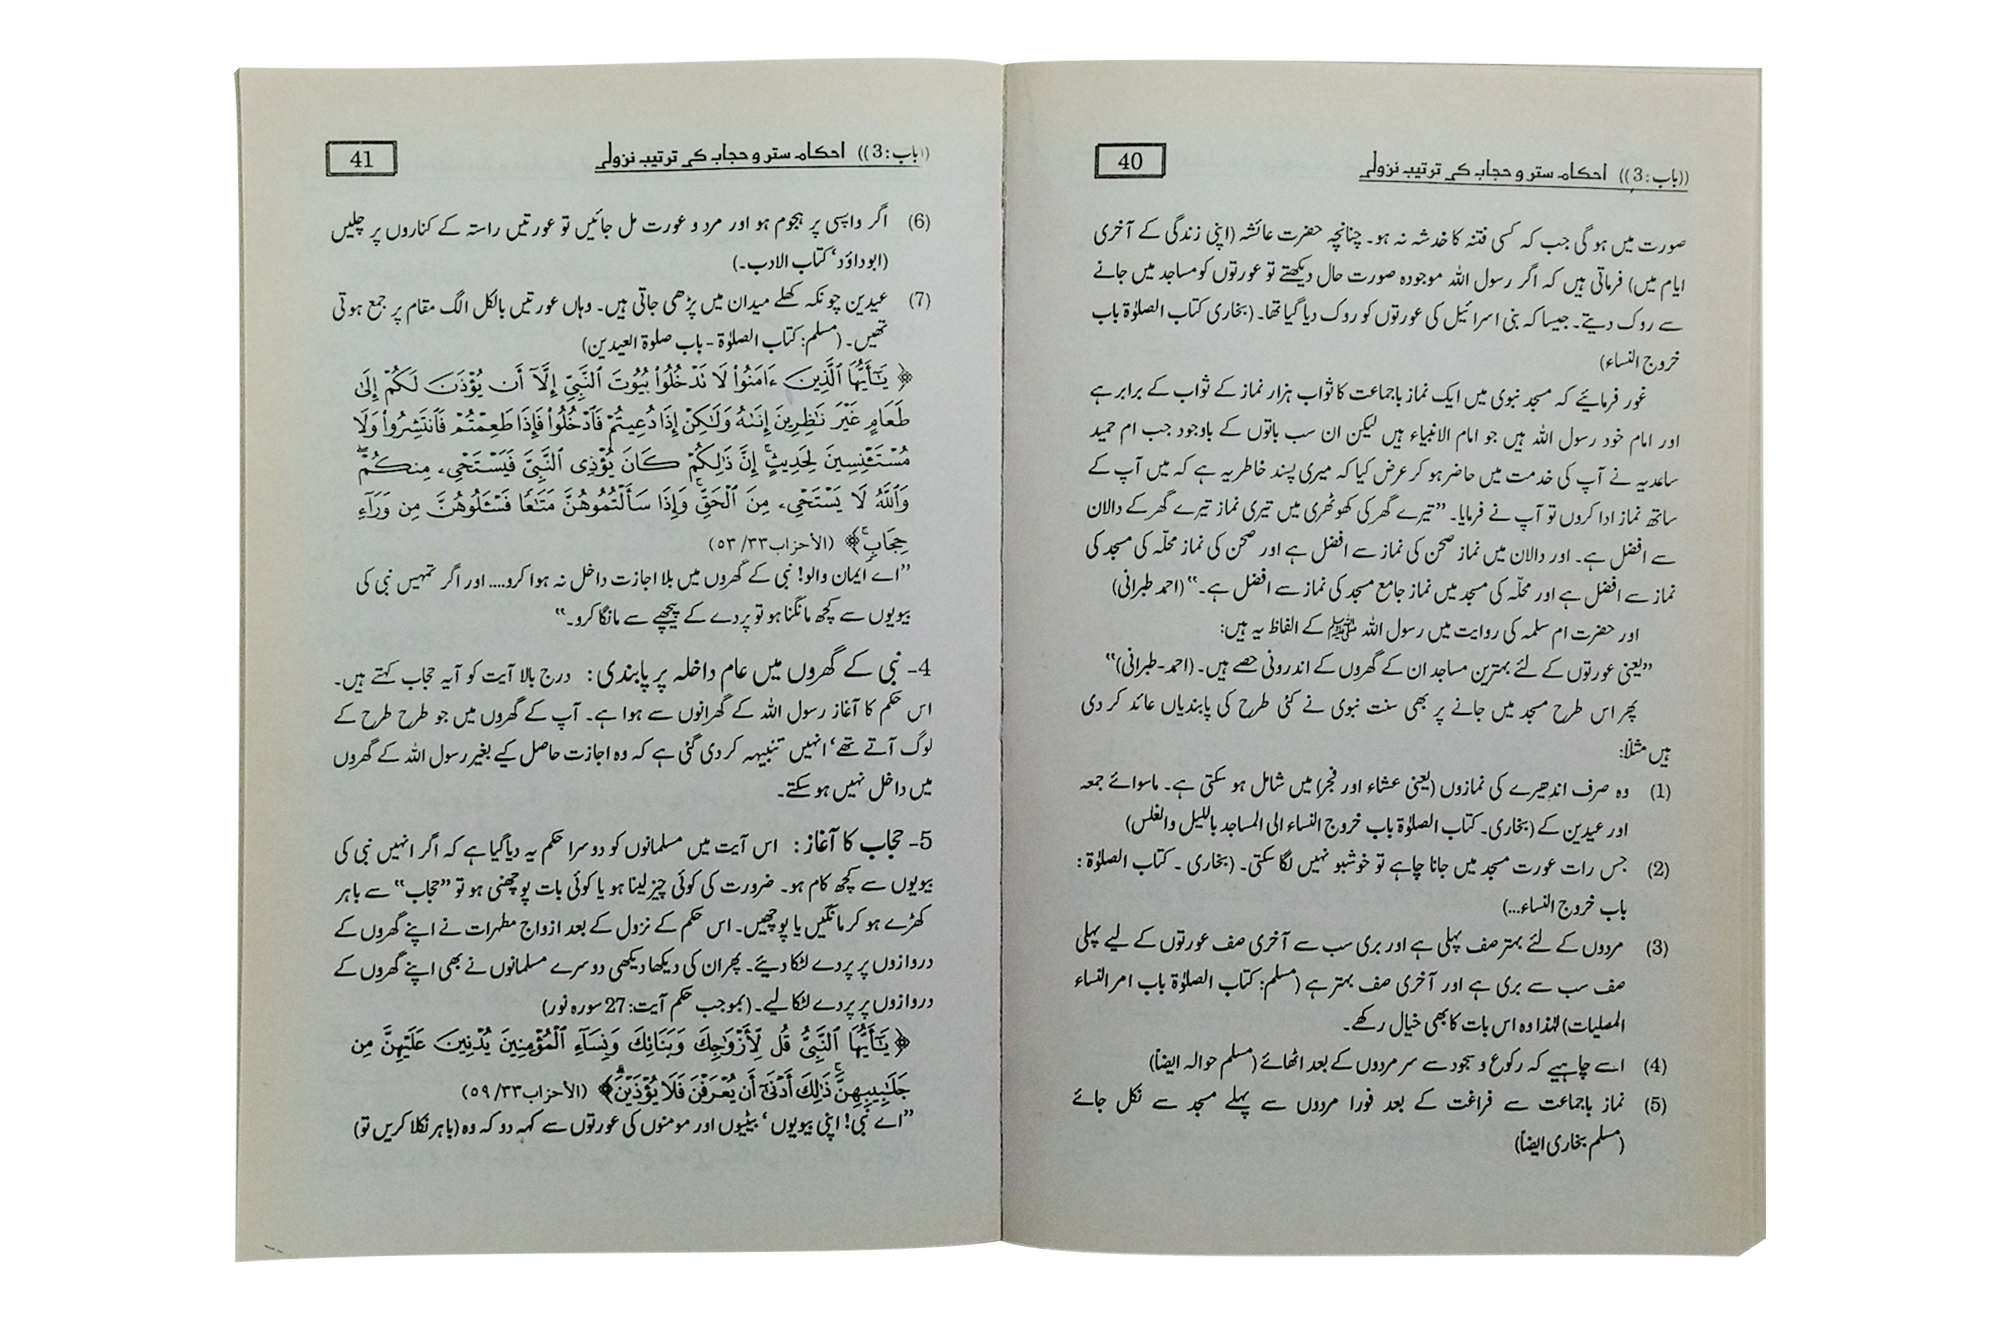 ((باب : 3)) احکام ستر و حجاب کی ترتیب نزولی 40
صورت میں ہو گی جب کہ کسی فتنہ کا خدشہ نہ ہو۔ چنانچہ حضرت عائشہ (اپنی زندگی کے آخری
ایام میں) فرماتی ہیں کہ اگر رسول اللہ موجودہ صورت حال دیکھتے تو عورتوں کو مساجد میں جانے
سے روک دیتے۔ جیسا کہ بنی اسرائیل کی عورتوں کو روک دیا گیا تھا۔ (بخاری کتاب الصلوٰۃ باب
خروج النساء)
غور فرمائیے کہ مسجد نبوی میں ایک نماز باجماعت کا ثواب ہزار نماز کے ثواب کے برابر ہے
اور امام خود رسول اللہ ہیں جو امام الانبیاء ہیں لیکن ان سب باتوں کے باوجود جب ام حمید
ساعدیہ نے آپ کی خدمت میں حاضر ہو کر عرض کیا کہ میری پسند خاطر یہ ہے کہ میں آپ کے
ساتھ نماز ادا کروں تو آپ نے فرمایا۔ ”تیرے گھر کی کوٹھری میں تیری نماز تیرے گھر کے دالان
سے افضل ہے۔ اور دالان میں نماز صحن کی نماز سے افضل ہے اور صحن کی نماز محلّہ کی مسجد کی
نماز سے افضل ہے اور محلّہ کی مسجد میں نماز جامع مسجد کی نماز سے افضل ہے۔“ (احمد طبرانی)
اور حضرت ام سلمہ کی روایت میں رسول اللہ ﷺ کے الفاظ یہ ہیں:
”یعنی عورتوں کے لئے بہترین مساجد ان کے گھروں کے اندرونی حصے ہیں۔ (احمد-طبرانی)“
پھر اس طرح مسجد میں جانے پر بھی سنت نبوی نے کئی طرح کی پابندیاں عائد کر دی
ہیں مثلاً:
(1) وہ صرف اندھیرے کی نمازوں (یعنی عشاء اور فجر) میں شامل ہو سکتی ہے۔ ماسوائے جمعہ
اور عیدین کے (بخاری۔ کتاب الصلوٰۃ باب خروج النساء الی المساجد باللیل والغلس)
(2) جس رات عورت مسجد میں جانا چاہے تو خوشبو نہیں لگا سکتی۔ (بخاری ۔ کتاب الصلوٰۃ :
باب خروج النساء...)
(3) مردوں کے لئے بہتر صف پہلی ہے اور بری سب سے آخری صف عورتوں کے لیے پہلی
صف سب سے بری ہے اور آخری صف بہتر ہے (مسلم: کتاب الصلوٰۃ باب امر النساء
المصلیات) لہٰذا وہ اس بات کا بھی خیال رکھے۔
(4) اسے چاہیے کہ رکوع و سجود سے سر مردوں کے بعد اٹھائے (مسلم حوالہ ایضاً)
(5) نماز باجماعت سے فراغت کے بعد فورا مردوں سے پہلے مسجد سے نکل جائے
(مسلم بخاری ایضاً)
((باب : 3)) احکام ستر و حجاب کی ترتیب نزولی 41
(6) اگر واپسی پر ہجوم ہو اور مرد و عورت مل جائیں تو عورتیں راستہ کے کناروں پر چلیں
(ابوداؤد‘ کتاب الادب۔)
(7) عیدین چونکہ کھلے میدان میں پڑھی جاتی ہیں۔ وہاں عورتیں بالکل الگ مقام پر جمع ہوتی
تھیں۔ (مسلم: کتاب الصلوٰۃ - باب صلوۃ العیدین)
﴿ يَـٰٓأَيُّهَا ٱلَّذِينَ ءَامَنُوا۟ لَا تَدْخُلُوا۟ بُيُوتَ ٱلنَّبِىِّ إِلَّآ أَن يُؤْذَنَ لَكُمْ إِلَىٰ
طَعَامٍ غَيْرَ نَـٰظِرِينَ إِنَىٰهُ وَلَـٰكِنْ إِذَا دُعِيتُمْ فَٱدْخُلُوا۟ فَإِذَا طَعِمْتُمْ فَٱنتَشِرُوا۟ وَلَا
مُسْتَـْٔنِسِينَ لِحَدِيثٍ ۚ إِنَّ ذَٰلِكُمْ كَانَ يُؤْذِى ٱلنَّبِىَّ فَيَسْتَحْىِۦ مِنكُمْ ۖ
وَٱللَّهُ لَا يَسْتَحْىِۦ مِنَ ٱلْحَقِّ ۚ وَإِذَا سَأَلْتُمُوهُنَّ مَتَـٰعًا فَسْـَٔلُوهُنَّ مِن وَرَآءِ
حِجَابٍ ۚ﴾ (الأحزاب ٣٣/ ٥٣)
”اے ایمان والو! نبی کے گھروں میں بلا اجازت داخل نہ ہوا کرو.... اور اگر تمہیں نبی کی
بیویوں سے کچھ مانگنا ہو تو پردے کے پیچھے سے مانگا کرو۔“
4- نبی کے گھروں میں عام داخلہ پر پابندی : درج بالا آیت کو آیہ حجاب کہتے ہیں۔
اس حکم کا آغاز رسول اللہ کے گھرانوں سے ہوا ہے۔ آپ کے گھروں میں جو طرح طرح کے
لوگ آتے تھے‘ انہیں تنبیہہ کر دی گئی ہے کہ وہ اجازت حاصل کیے بغیر رسول اللہ کے گھروں
میں داخل نہیں ہو سکتے۔
5- حجاب کا آغاز : اس آیت میں مسلمانوں کو دوسرا حکم یہ دیا گیا ہے کہ اگر انہیں نبی کی
بیویوں سے کچھ کام ہو۔ ضرورت کی کوئی چیز لینا ہو یا کوئی بات پوچھنی ہو تو ”حجاب“ سے باہر
کھڑے ہو کر مانگیں یا پوچھیں۔ اس حکم کے نزول کے بعد ازواج مطہرات نے اپنے گھروں کے
دروازوں پر پردے لٹکا دیئے۔ پھر ان کی دیکھا دیکھی دوسرے مسلمانوں نے بھی اپنے گھروں کے
دروازوں پر پردے لٹکا لیے۔ (بموجب حکم آیت: 27 سورہ نور)
﴿ يَـٰٓأَيُّهَا ٱلنَّبِىُّ قُل لِّأَزْوَٰجِكَ وَبَنَاتِكَ وَنِسَآءِ ٱلْمُؤْمِنِينَ يُدْنِينَ عَلَيْهِنَّ مِن
جَلَـٰبِيبِهِنَّ ۚ ذَٰلِكَ أَدْنَىٰٓ أَن يُعْرَفْنَ فَلَا يُؤْذَيْنَ ۗ﴾ (الأحزاب ٣٣/ ٥٩)
”اے نبی! اپنی بیویوں‘ بیٹیوں اور مومنوں کی عورتوں سے کہہ دو کہ وہ (باہر نکلا کریں تو)